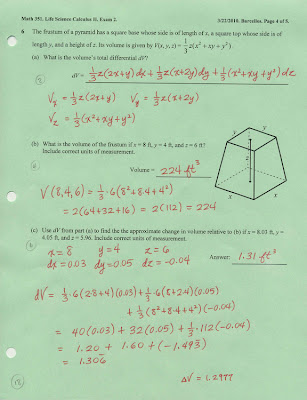 Math 351. Life Science Calculus II. Exam 2. 3/22/2010. Barcellos. Page 4 of 8.
6 The frustum of a pyramid has a square base whose side is of length x, a square top whose side is of
length y, and a height of z. Its volume is given by V(x, y, z) = 1/3 z(x² + xy + y²).
(a) What is the volume's total differential dV?
dV = 1/3 z(2x+y) dx + 1/3 z(x+2y) dy + 1/3 (x²+xy+y²) dz
Vx = 1/3 z(2x+y) Vy = 1/3 z(x+2y)
Vz = 1/3 (x²+xy+y²)
(b) What is the volume of the frustum if x = 8 ft, y = 4 ft, and z = 6 ft?
Include correct units of measurement.
Volume = 224 ft³
V(8,4,6) = 1/3 · 6(8²+8·4+4²)
= 2(64+32+16) = 2(112) = 224
y
y
z
x
x
(c) Use dV from part (a) to find the the approximate change in volume relative to (b) if x = 8.03 ft, y =
4.05 ft, and z = 5.96. Include correct units of measurement.
x = 8 y = 4 z = 6
dx = 0.03 dy = 0.05 dz = -0.04
Answer: 1.31 ft³
dV = 1/3 · 6(2·8+4)(0.03) + 1/3 · 6(8+2·4)(0.05)
+ 1/3 (8²+8·4+4²)(-0.04)
= 40(0.03) + 32(0.05) + 1/3 · 112(-0.04)
= 1.20 + 1.60 + (-1.493̄)
= 1.306̄
ΔV = 1.2977